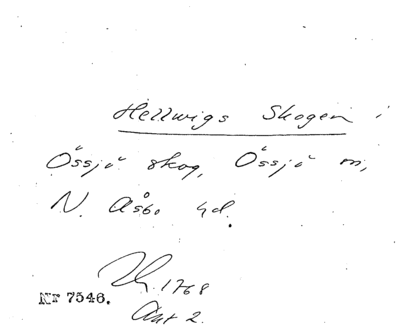 Hellwigs Skogen i
Össjö skog, Össjö m,
N. Åsbo hd.
1768
Nr 7546.
Akt 2.